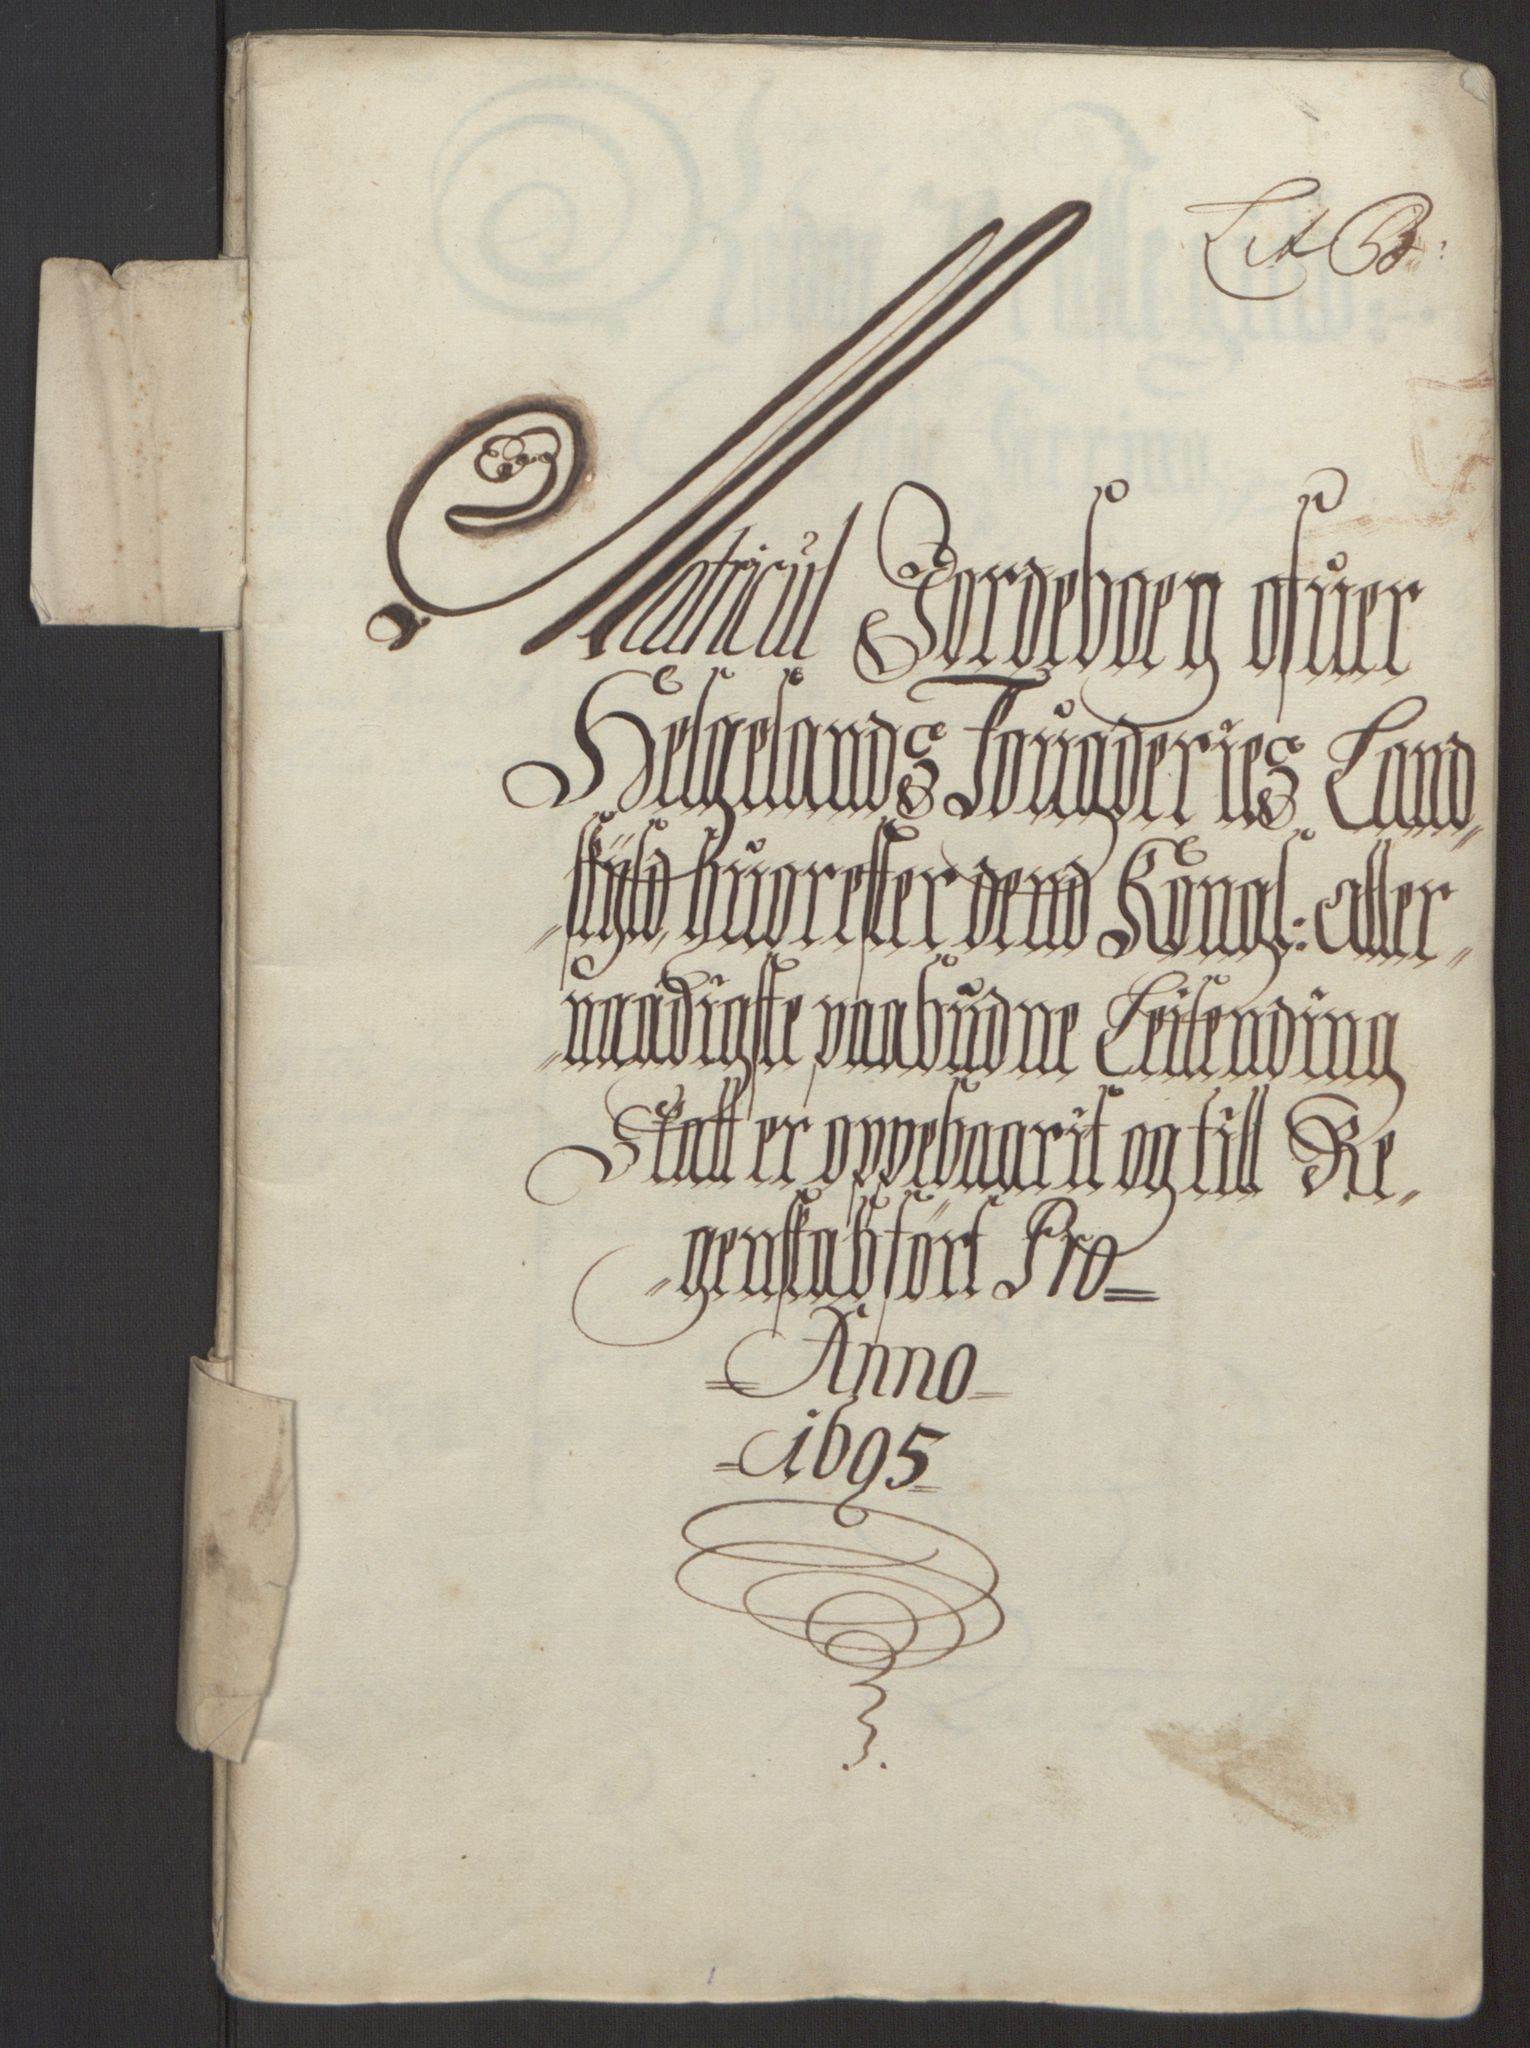 Lit B:
Matricul Jordeboeg ofuer
Helgelands Fougderies Land,,
,,skyld, huorefter dend Kongl: Aller,,
,,naadigste paabudne Leilending
Skatt er oppebaarit og till Re,,
,,genskab fört Pro
Anno
1695